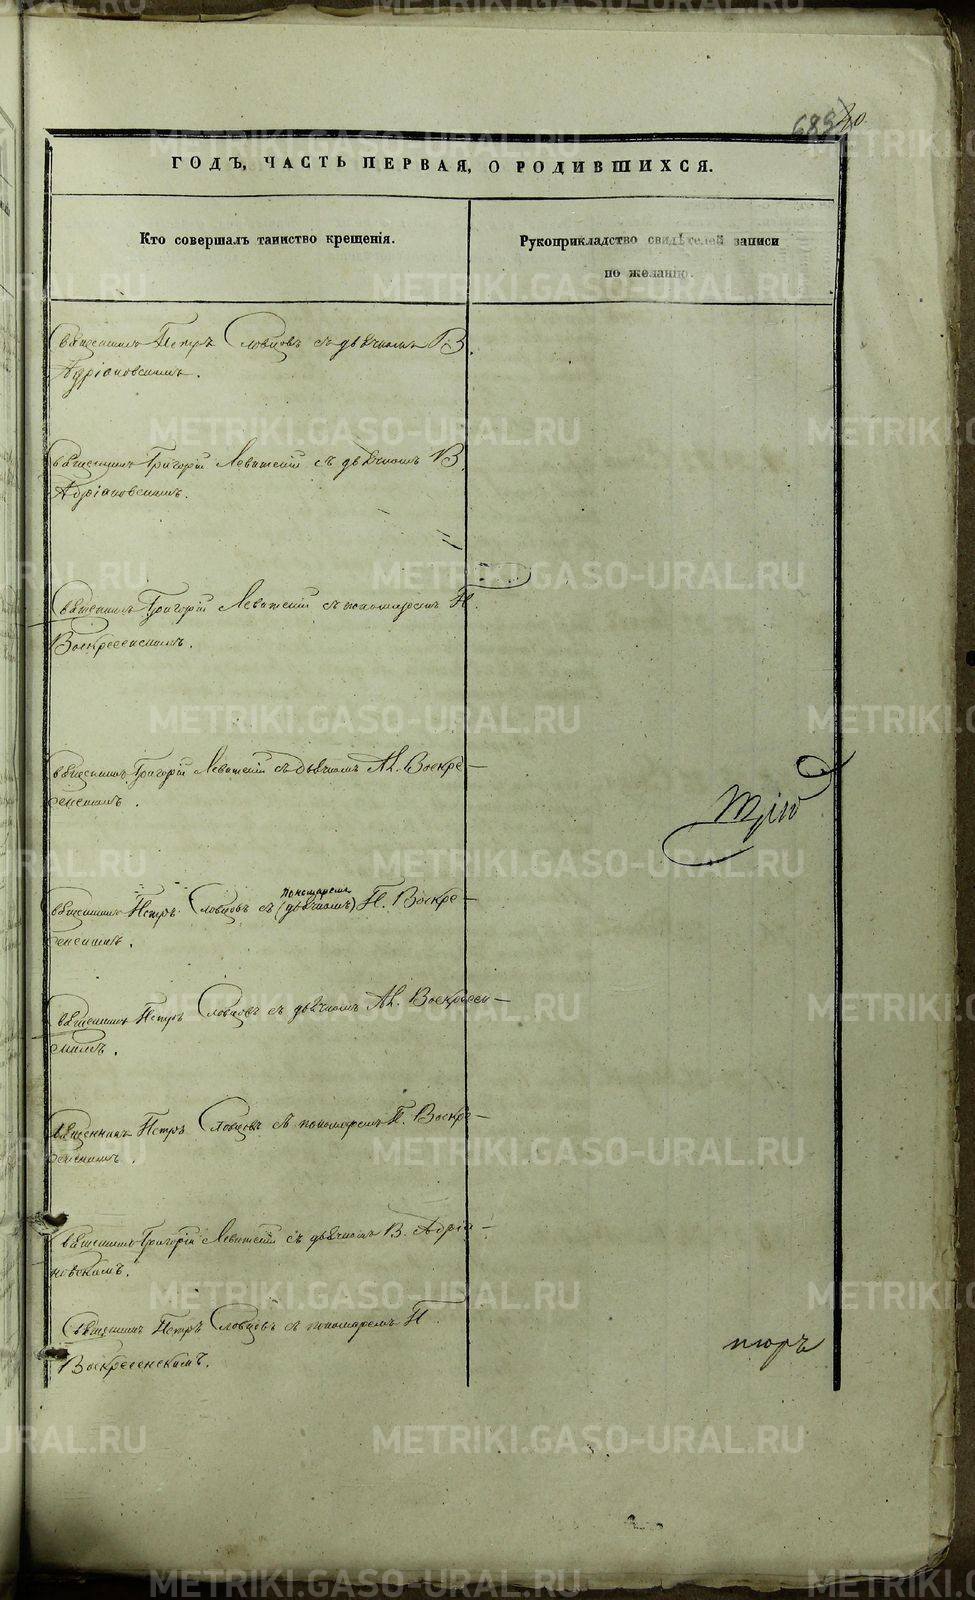 ГОДЪ, ЧАСТЬ ПЕРВАЯ, О РОДИВШИХСЯ.
Кто совершалъ таинство крещенія.
Рукоприкладство свидѣтелей записи
по желанію.
Священникъ Петръ Словцовъ съ дьячкомъ В.
Адріановскимъ.
Священникъ Григорій Левитскій съ дьячкомъ В.
Адріановскимъ.
Священникъ Григорій Левитскій съ пономаремъ П.
Воскресенскимъ.
Священникъ Григорій Левитскій съ дьячкомъ Ал. Воскре-
сенскимъ.
пономаремъ
Священникъ Петръ Словцовъ съ (дьячкомъ) П. Воскре-
сенскимъ.
Священникъ Петръ Словцовъ съ дьячкомъ Ал. Воскресен-
скимъ.
Священникъ Петръ Словцовъ съ пономаремъ П. Воскре-
сенскимъ.
Священникъ Григорій Левитскій съ дьячкомъ В. Адріа-
новскимъ.
Священникъ Петръ Словцовъ съ пономаремъ П.
Воскресенскимъ.
METRIKI.GASO-URAL.RU